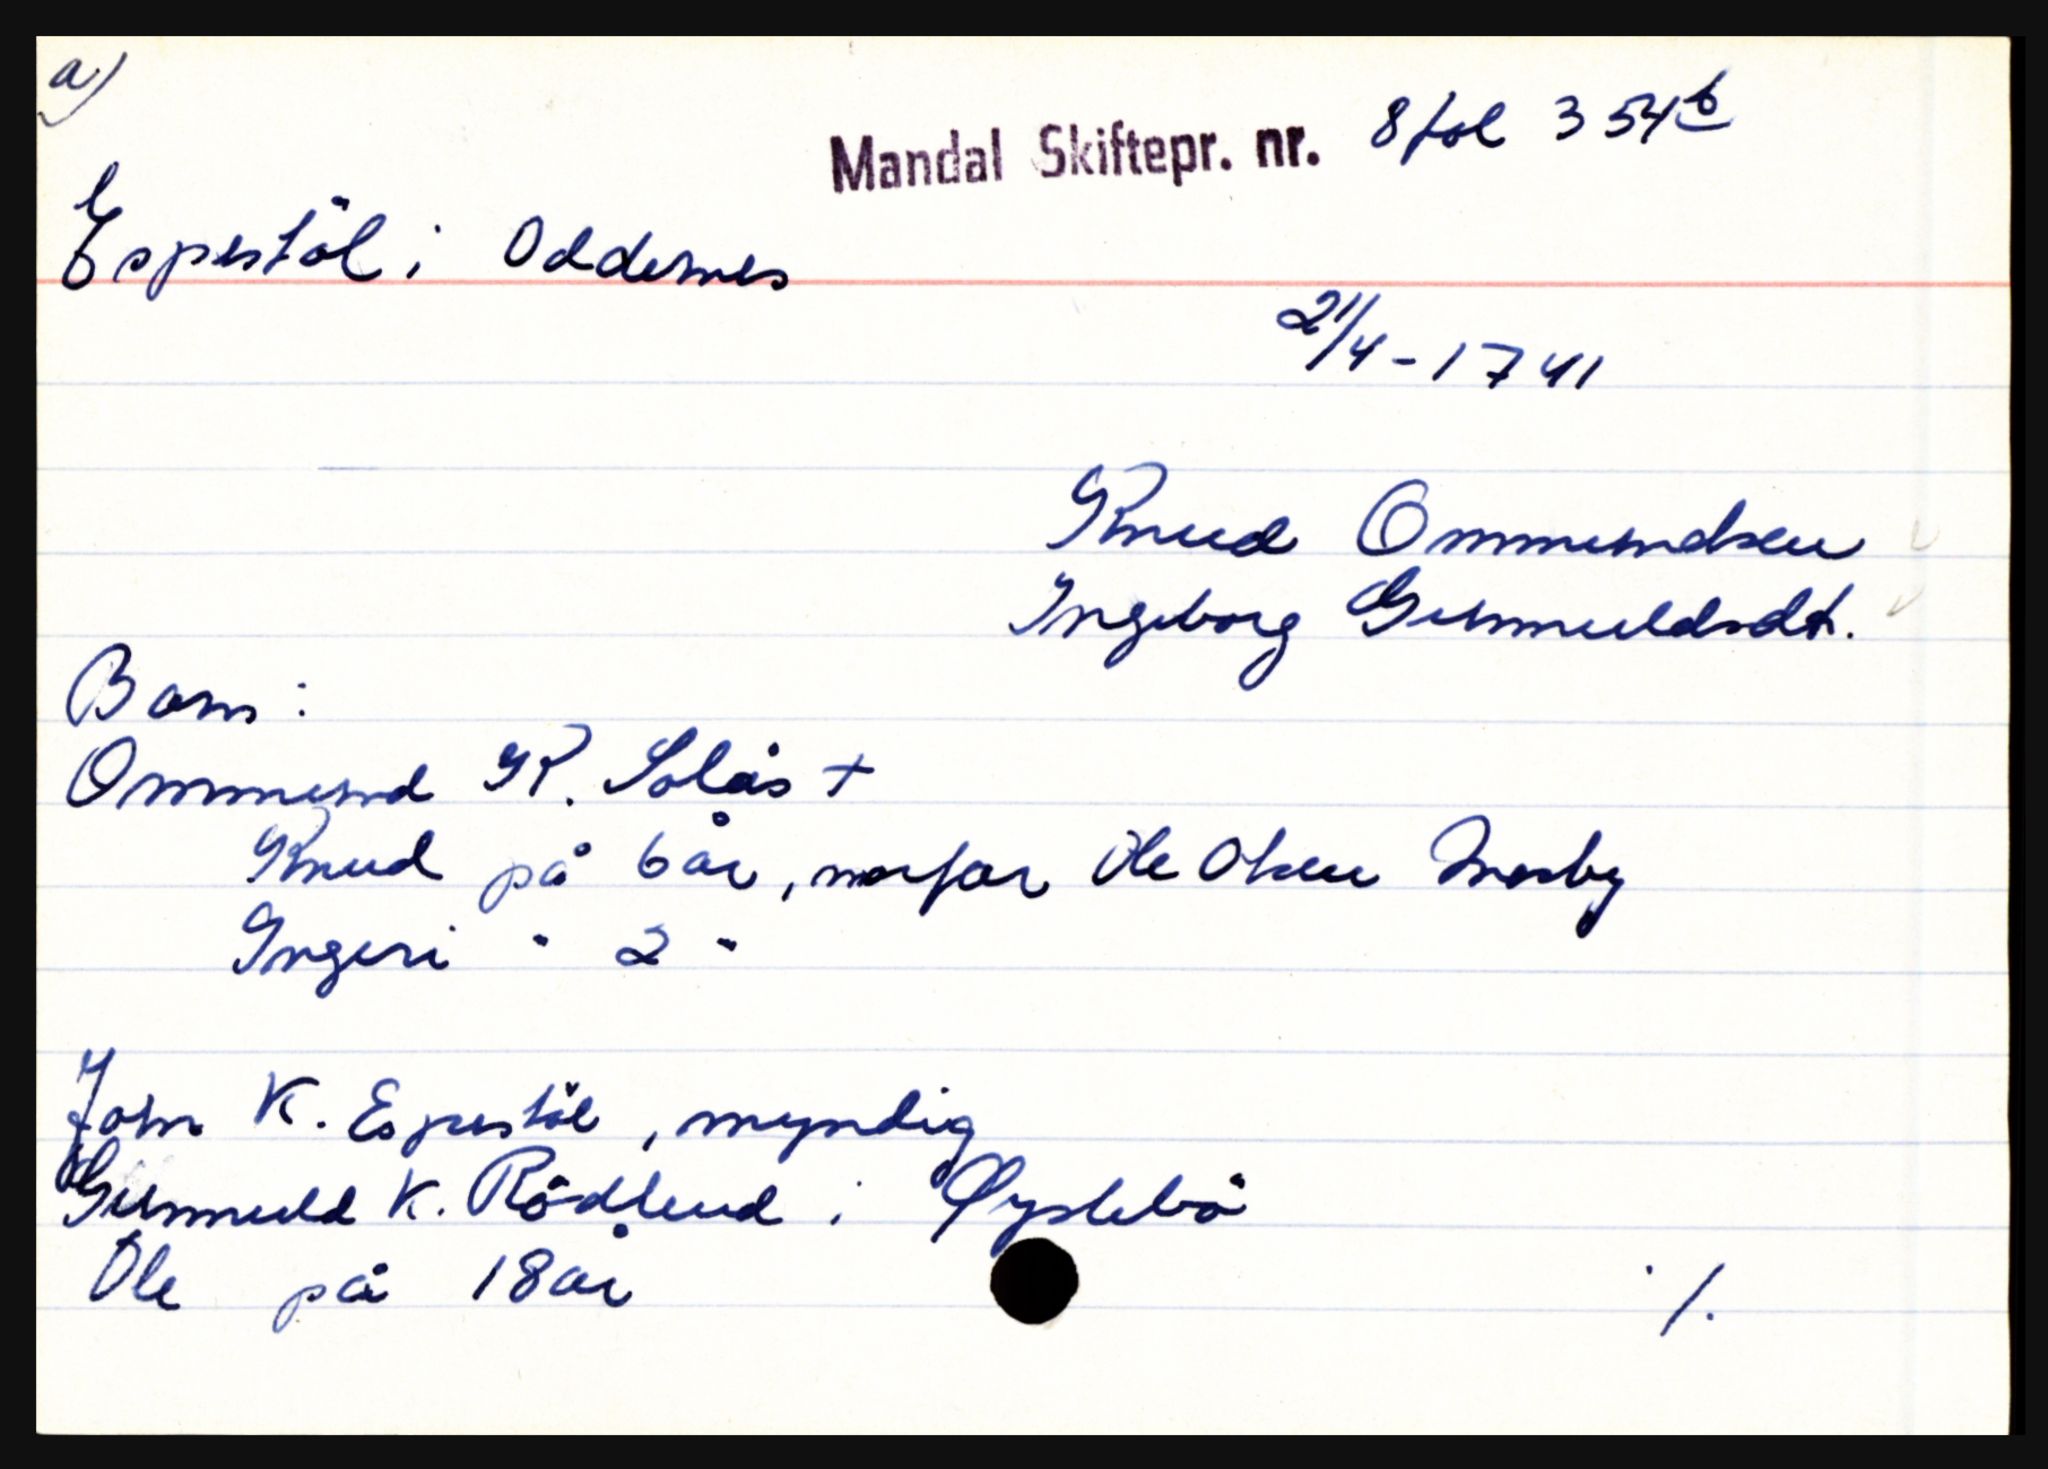 a)
Mandal Skiftepr. nr. 8 fol 354b
Espestöl i Oddernes
21/4-1741
Knud Ommundsen
Ingeborg Gunnuldsdt.
Barn:
Ommund K. Solås +
Knud på 6 år, morfar Ole Olsen Mosby
Ingeri " 2 "
John K. Espestöl, myndig
Gunnuld K. Rödlend i Øyslebö
Ole på 18 år
./.